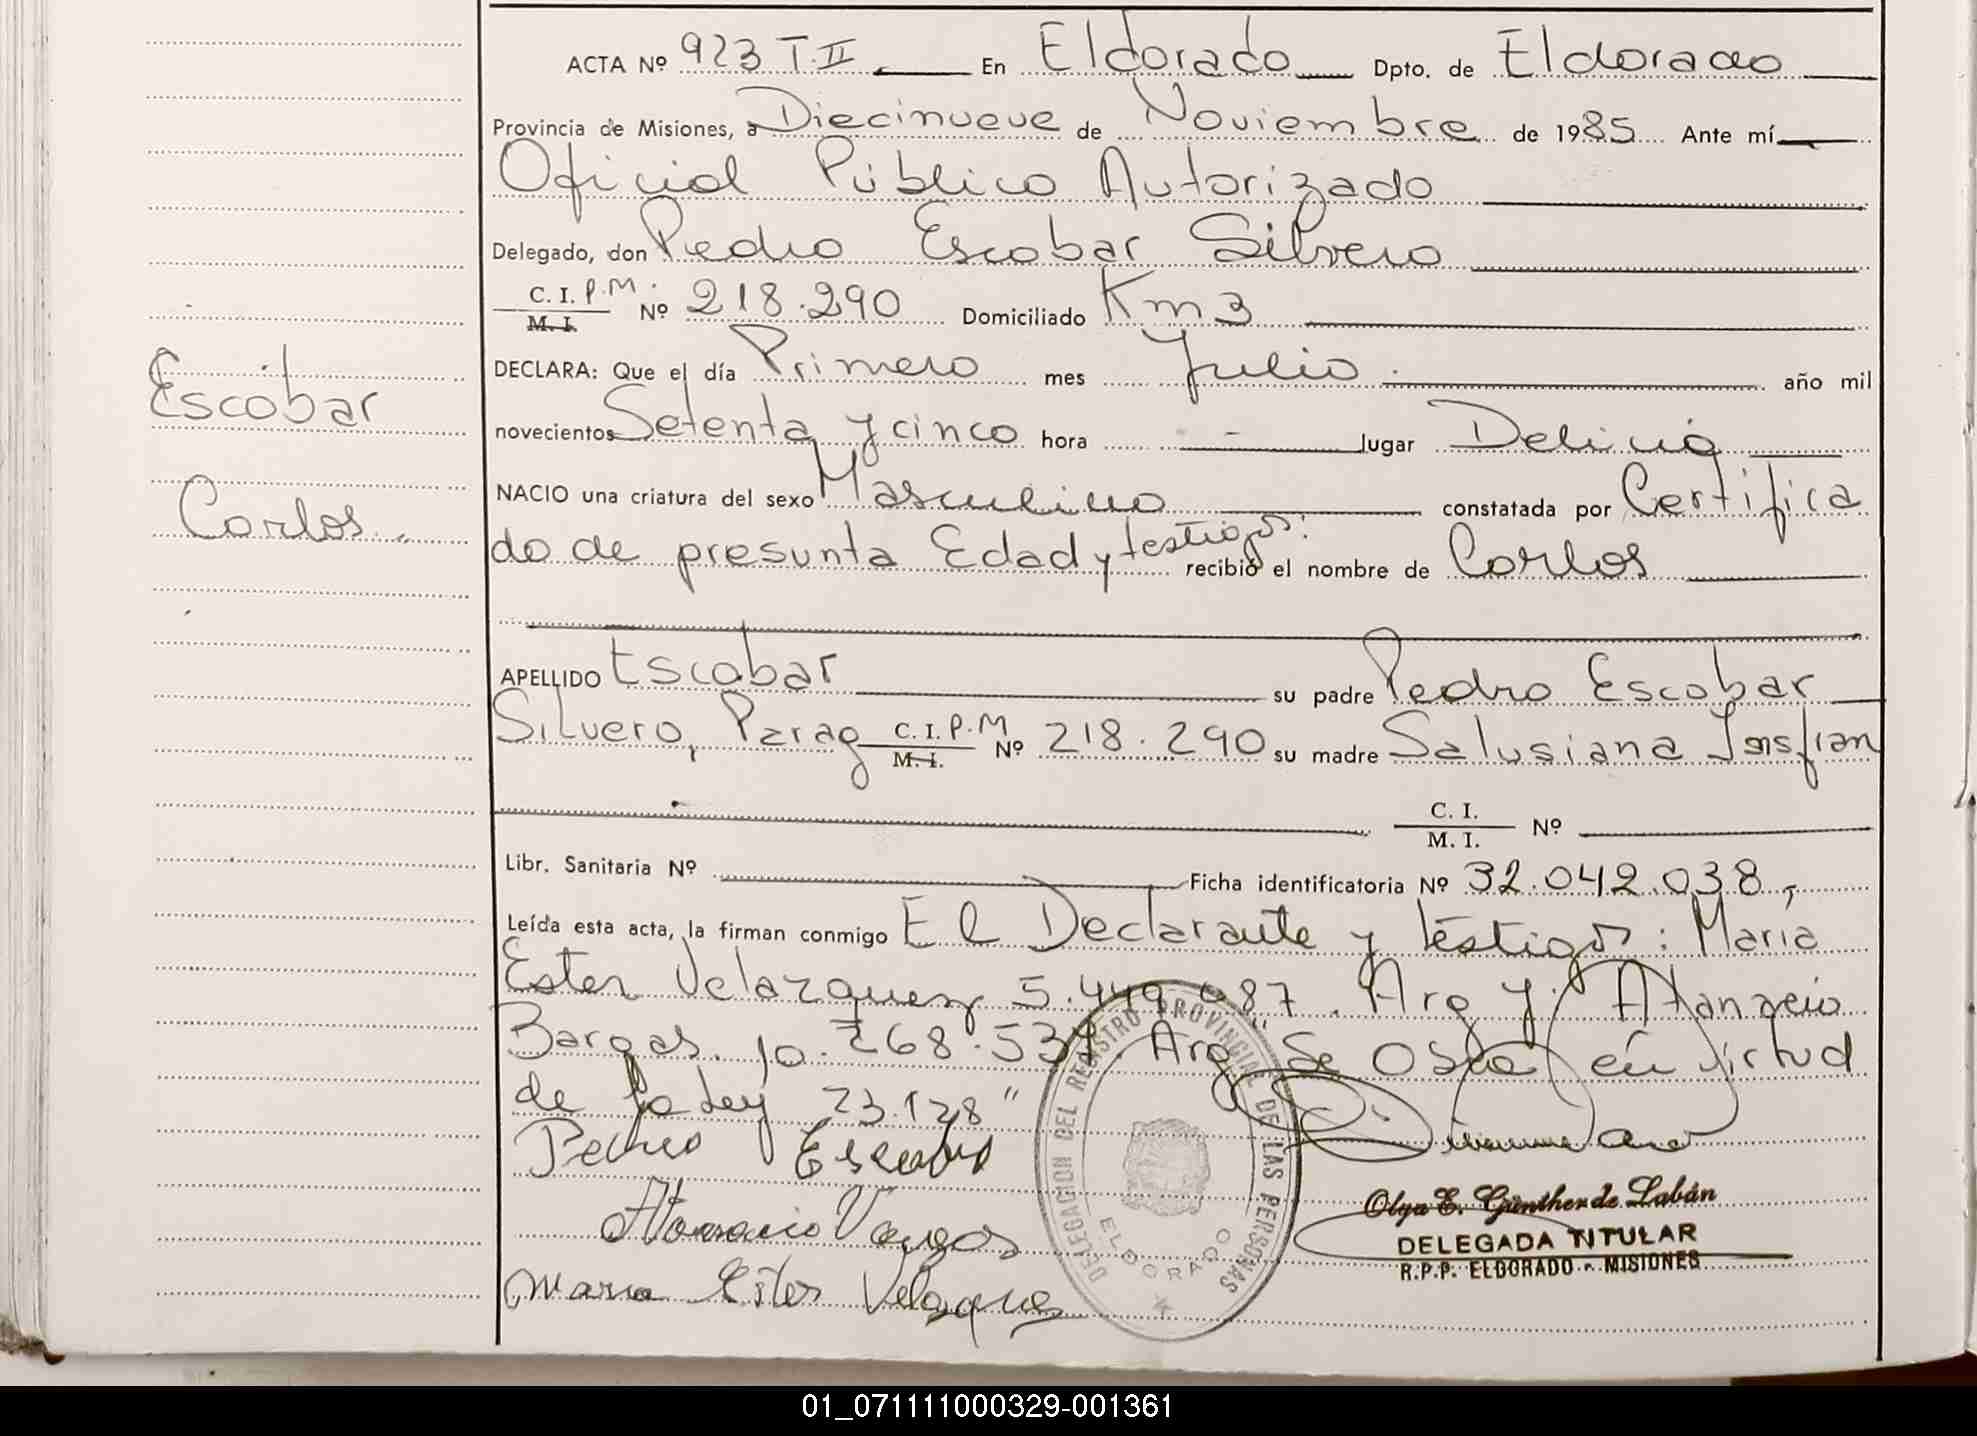 ACTA Nº 923 T.II En Eldorado Dpto. de Eldorado
Provincia de Misiones, a Diecinueve de Noviembre de 1985 Ante mí
Oficial Público Autorizado
Delegado, don Pedro Escobar Silvero
C. I. P.M. Nº 218.290 Domiciliado Km 3
M. I.
DECLARA: Que el día Primero mes Julio año mil
novecientos Setenta y cinco hora lugar Delicia
NACIO una criatura del sexo Masculino constatada por Certifica
do de presunta Edad y testigos: recibió el nombre de Carlos
APELLIDO Escobar su padre Pedro Escobar
Silvero, Parag C. I. P.M Nº 218.290 su madre Salusiana Insfran
M. I.
C. I.
M. I. Nº
Libr. Sanitaria Nº Ficha identificatoria Nº 32.042.038,
Leída esta acta, la firman conmigo El Declarante y testigos: María
Ester Velazquez 5.449.087. Arg y: Atanacio
Bargas. 10.268.537. Arg. "Se en virtud
de la Ley 23.128"
Escobar
Carlos
Pedro Escobar
Atanacio Vargas
Maria Ester Velazquez
DELEGACION DEL REGISTRO PROVINCIAL DE LAS PERSONAS
ELDORADO
Olga E. Günther de Labán
DELEGADA TITULAR
R.P.P. ELDORADO - MISIONES
01_071111000329-001361